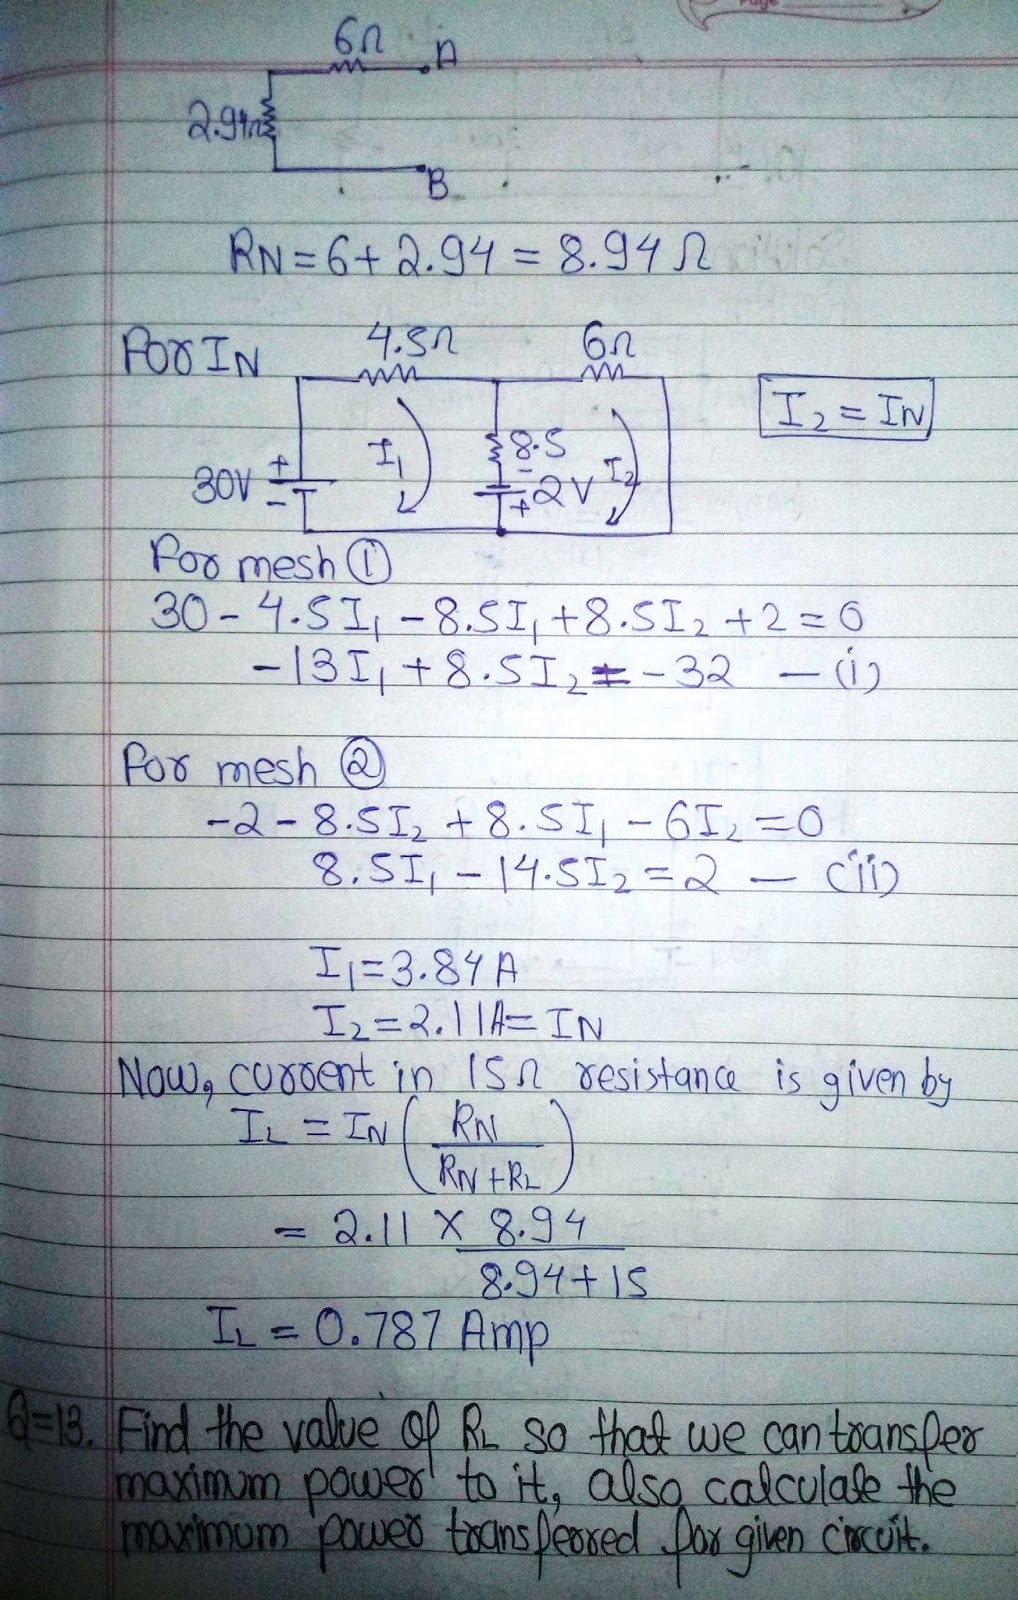 6Ω
A
2.94Ω
B
RN = 6 + 2.94 = 8.94 Ω
For IN
4.5Ω
6Ω
I2 = IN
30V
+
-
I1
8.5
-
2V
+
I2
For mesh ①
30 - 4.5I1 - 8.5I1 + 8.5I2 + 2 = 0
-13I1 + 8.5I2 = -32 — (i)
For mesh ②
-2 - 8.5I2 + 8.5I1 - 6I2 = 0
8.5I1 - 14.5I2 = 2 — (ii)
I1 = 3.84 A
I2 = 2.11A = IN
Now, current in 15Ω resistance is given by
IL = IN (RN / RN + RL)
= 2.11 × 8.94
8.94 + 15
IL = 0.787 Amp
Q=13. Find the value of RL so that we can transfer
maximum power to it, also calculate the
maximum power transferred for given circuit.